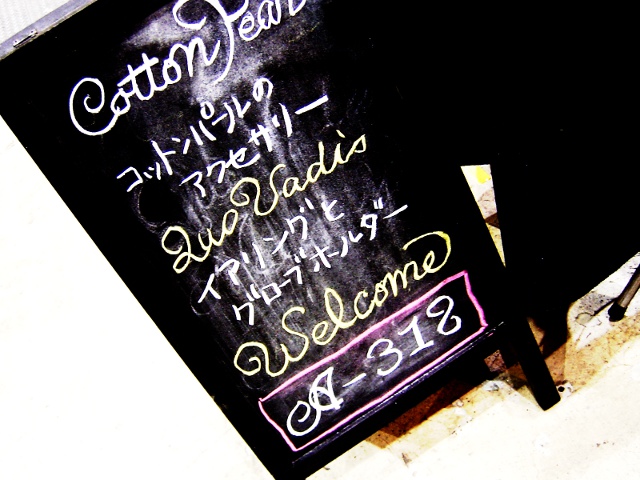 Cotton Pearl
コットンパールの
アクセサリー
Quo Vadis
イアリングと
グローブホルダー
Welcome
A-318